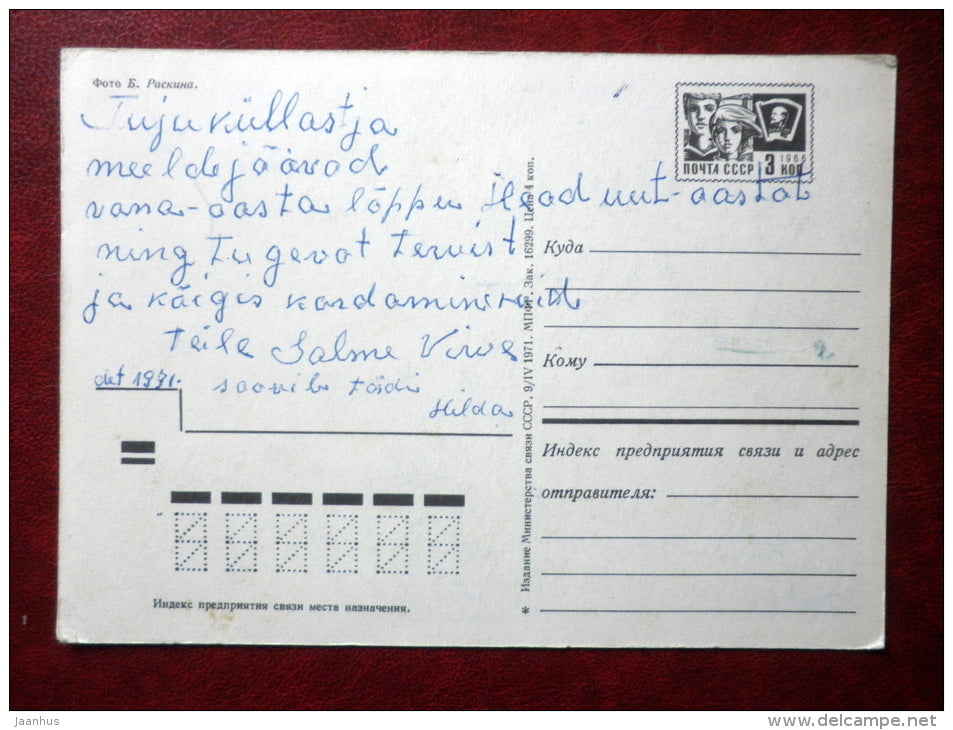 Фото Б. Раскина.
Tujuküllast ja
meeldejäävad
vana-aasta lõppu Head uut-aastat
ning tugevat tervist
ja kõigis kordaminekuid
Teile Salme Virve
soovib tädi
Hilda
det 1971.
1966
ПОЧТА СССР 3 коп
Куда
Кому
Индекс предприятия связи и адрес
отправителя:
Индекс предприятия связи места назначения.
* Издание Министерства связи СССР. 9/IV 1971. МПФГ. Зак. 16299. Цена 4 коп.
Jaanhus
www.delcampe.net